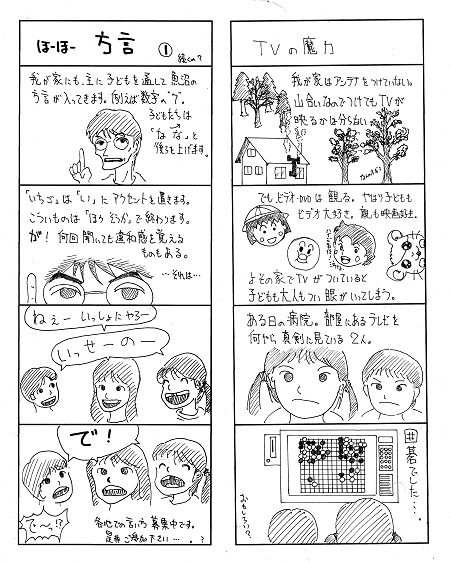 ほーほー 方言 ①
続くの?
我が家にも、主に子どもを通して魚沼の
方言が入ってきます。例えば数字の"7"。
子どもたちは
「なな」と
後ろを上げます。
「いちご」は「い」にアクセントを置きます。
こういうものは「ほう そうか」で終わります。
が! 何回聞いても違和感を覚える
ものもある。
…それは…
ねぇー いっしょに やろー
いっせーのー
で!
で〜っ!?
各地での言い方 募集中です。
是非ご参加下さい…。?
TVの魔力
我が家はアンテナをつけていない。
山合いなのでつけてもTVが
映るかは分らない。
でもビデオ・DVDは観る。やはり子どもも
ビデオ大好き。親も映画好き。
よその家でTVがついていると
子どもも大人もつい眼がいってしまう。
ある日の病院。部屋にあるテレビを
何やら真剣に見ている2人。
囲碁でした・・・。
おもしろい?